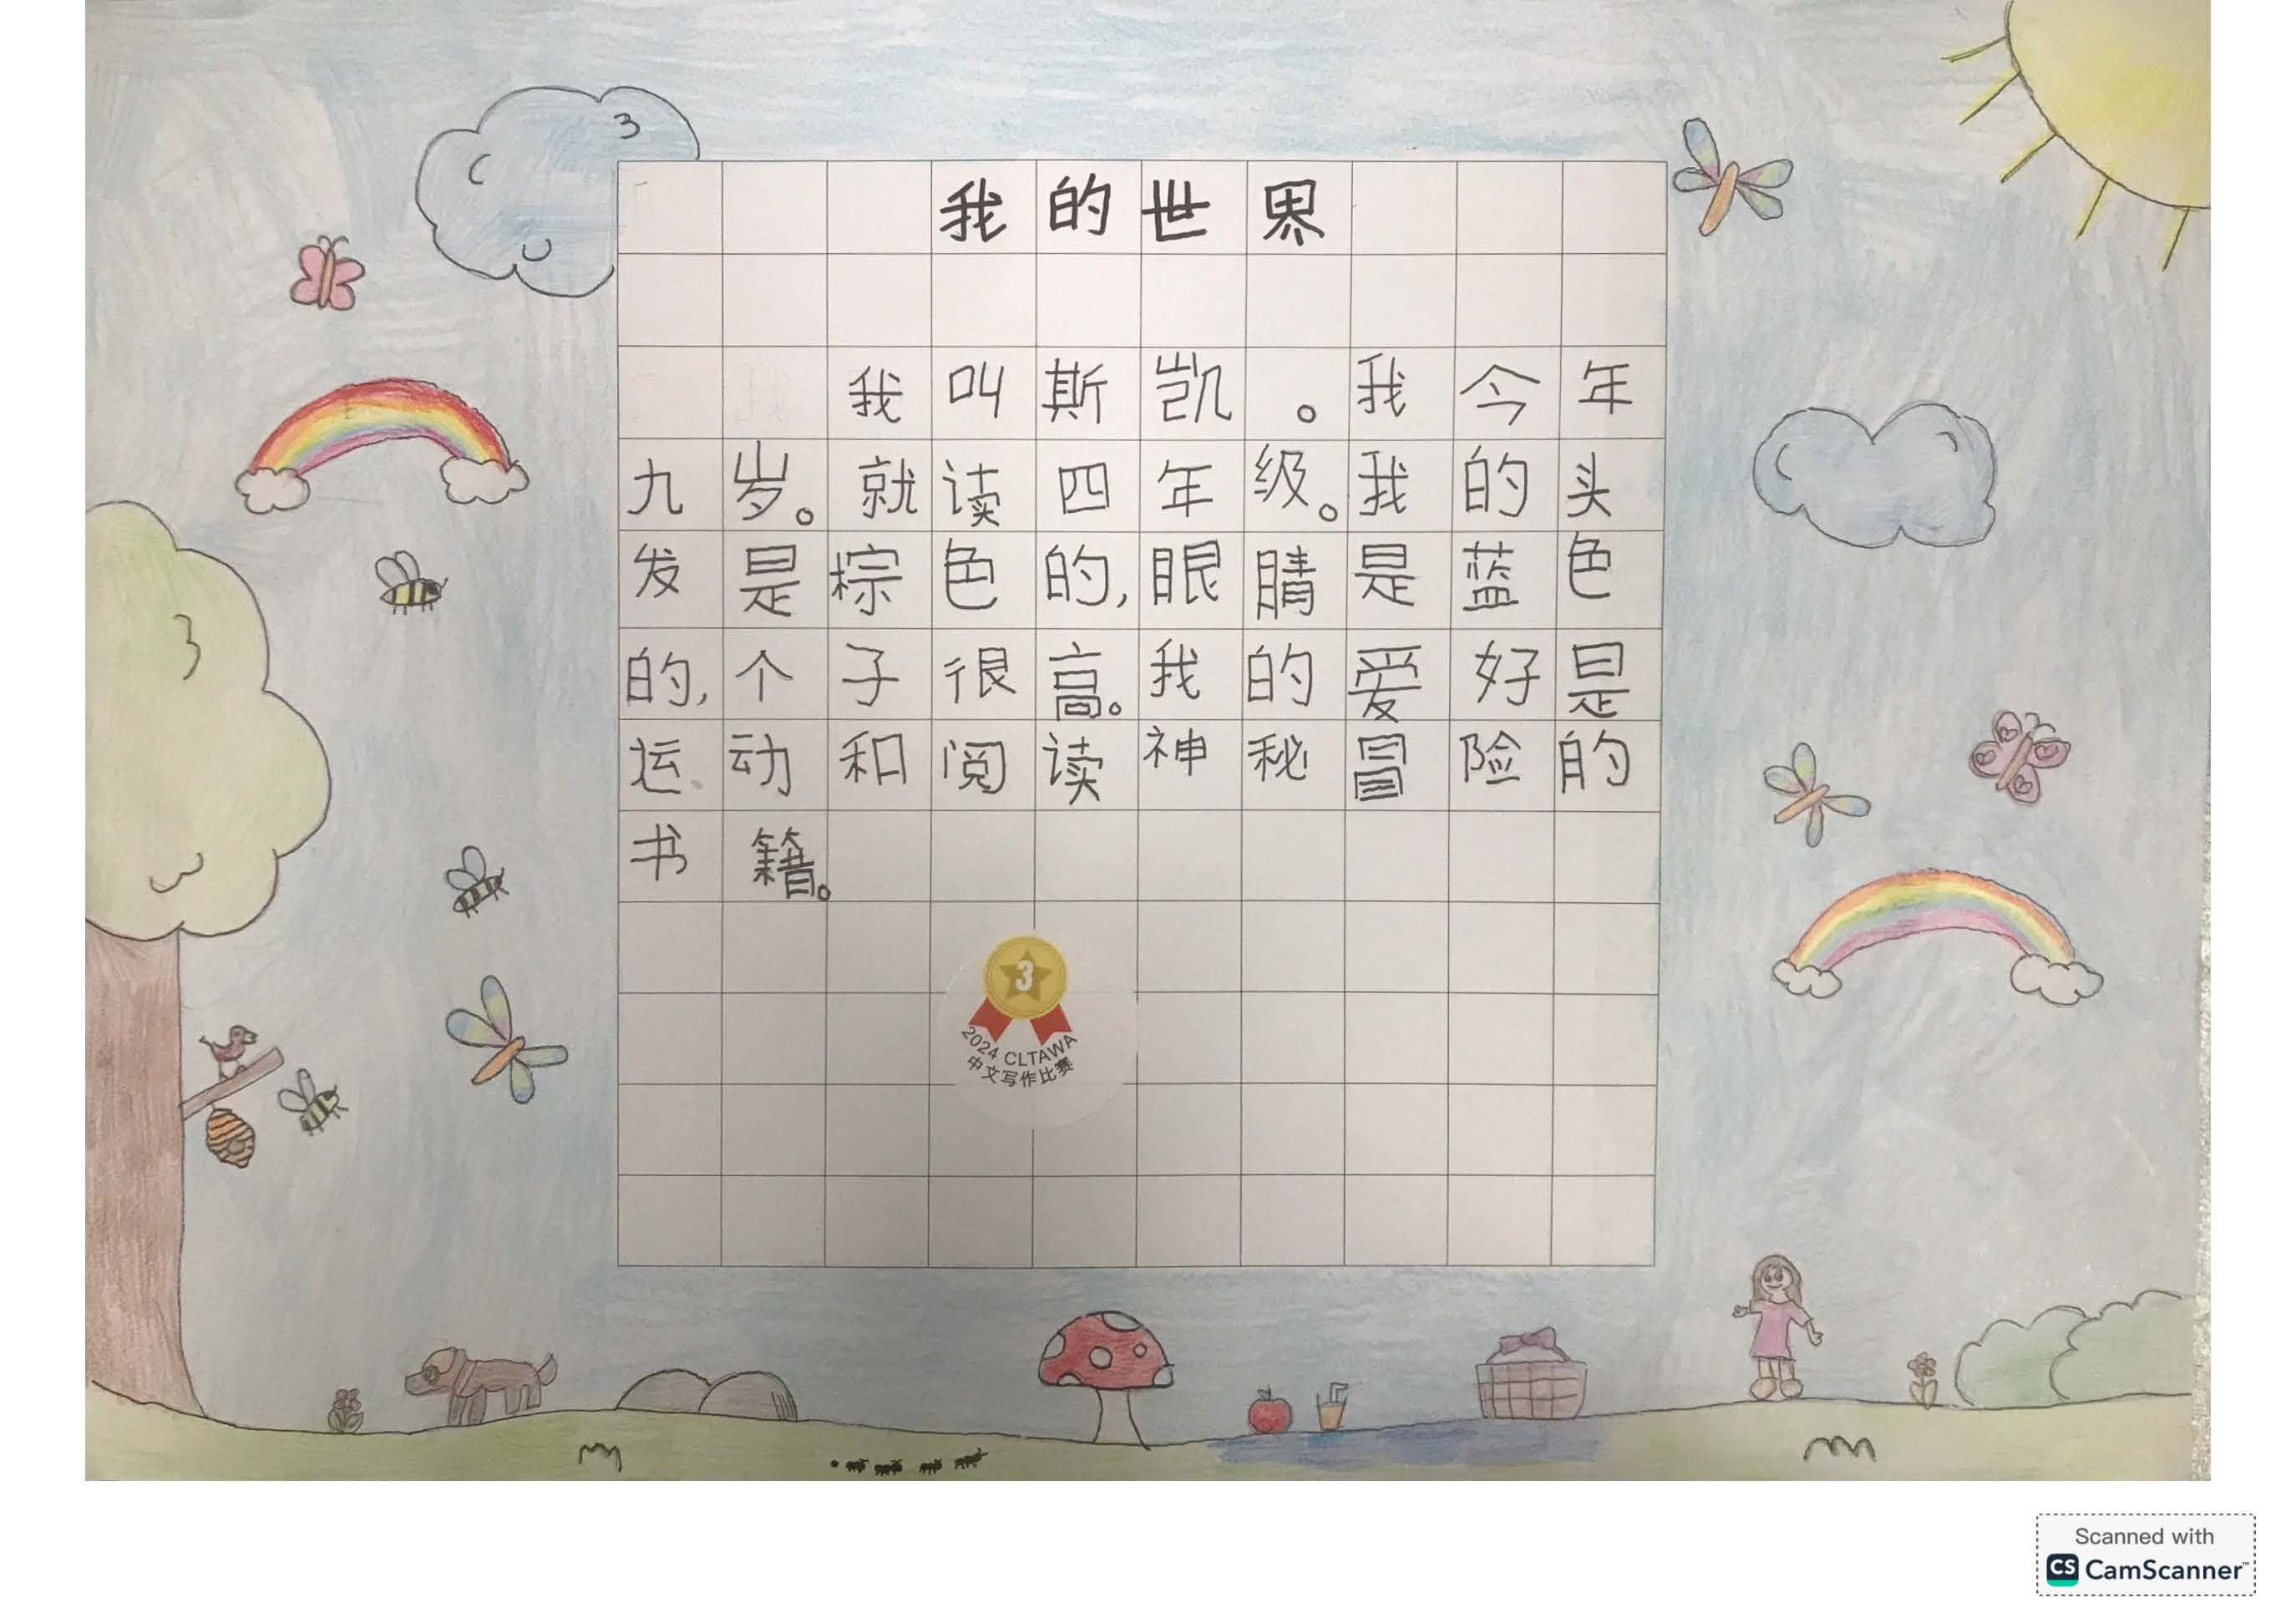 我的世界
我叫斯凯。我今年
九岁。就读四年级。我的头
发是棕色的,眼睛是蓝色
的,个子很高。我的爱好是
运动和阅读神秘冒险的
书籍。
3
2024 CLTAWA
中文写作比赛
Scanned with
CS CamScanner™